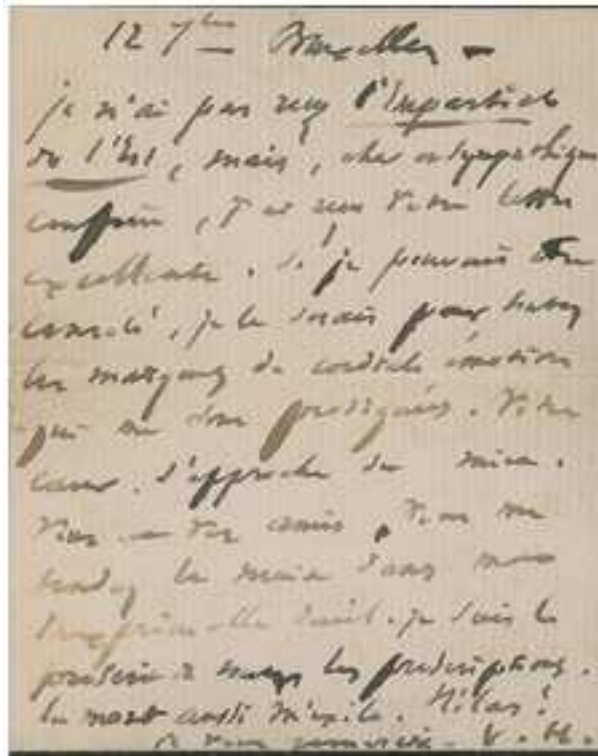 12 7bre Bruxelles —
je n'ai pas reçu l'Impartial
de l'Est, mais, cher et sympathique
confrère, j'ai reçu votre lettre
excellente. Si je pouvais être
consolé, je le serais par toutes
les marques de cordiale émotion
qui me sont prodiguées. Votre
cœur s'approche du mien.
Vous et vos amis, vous me
tendez la main dans mon
deuil. je suis le
proscrit de toutes les proscriptions.
La mort aussi m'exile. Hélas!
V. H.